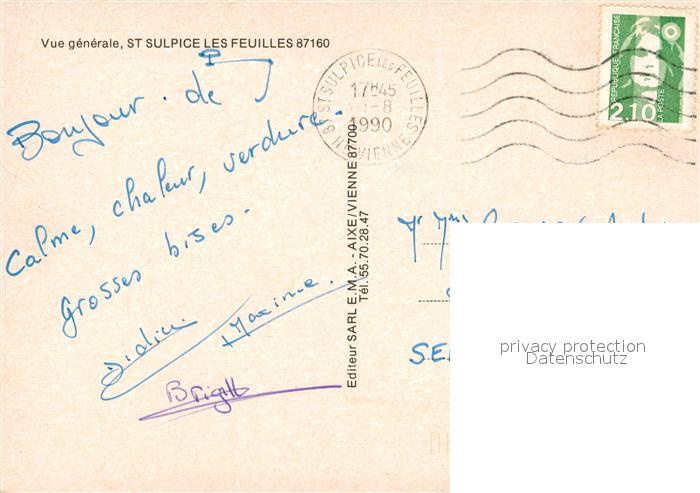 Vue générale, ST SULPICE LES FEUILLES 87160
Bonjour de
Calme, chaleur, verdure.
Grosses bises.
Didier
Maxime.
Brigitt
Editeur SARL E.M.A. - AIXE/VIENNE 87700
Tél. 55.70.28.47
87 ST SULPICE LES FEUILLES
17H45
-8
1990
Hte VIENNE
REPUBLIQUE FRANÇAISE
2,10
LA POSTE
Mr Mme
SE
privacy protection
Datenschutz